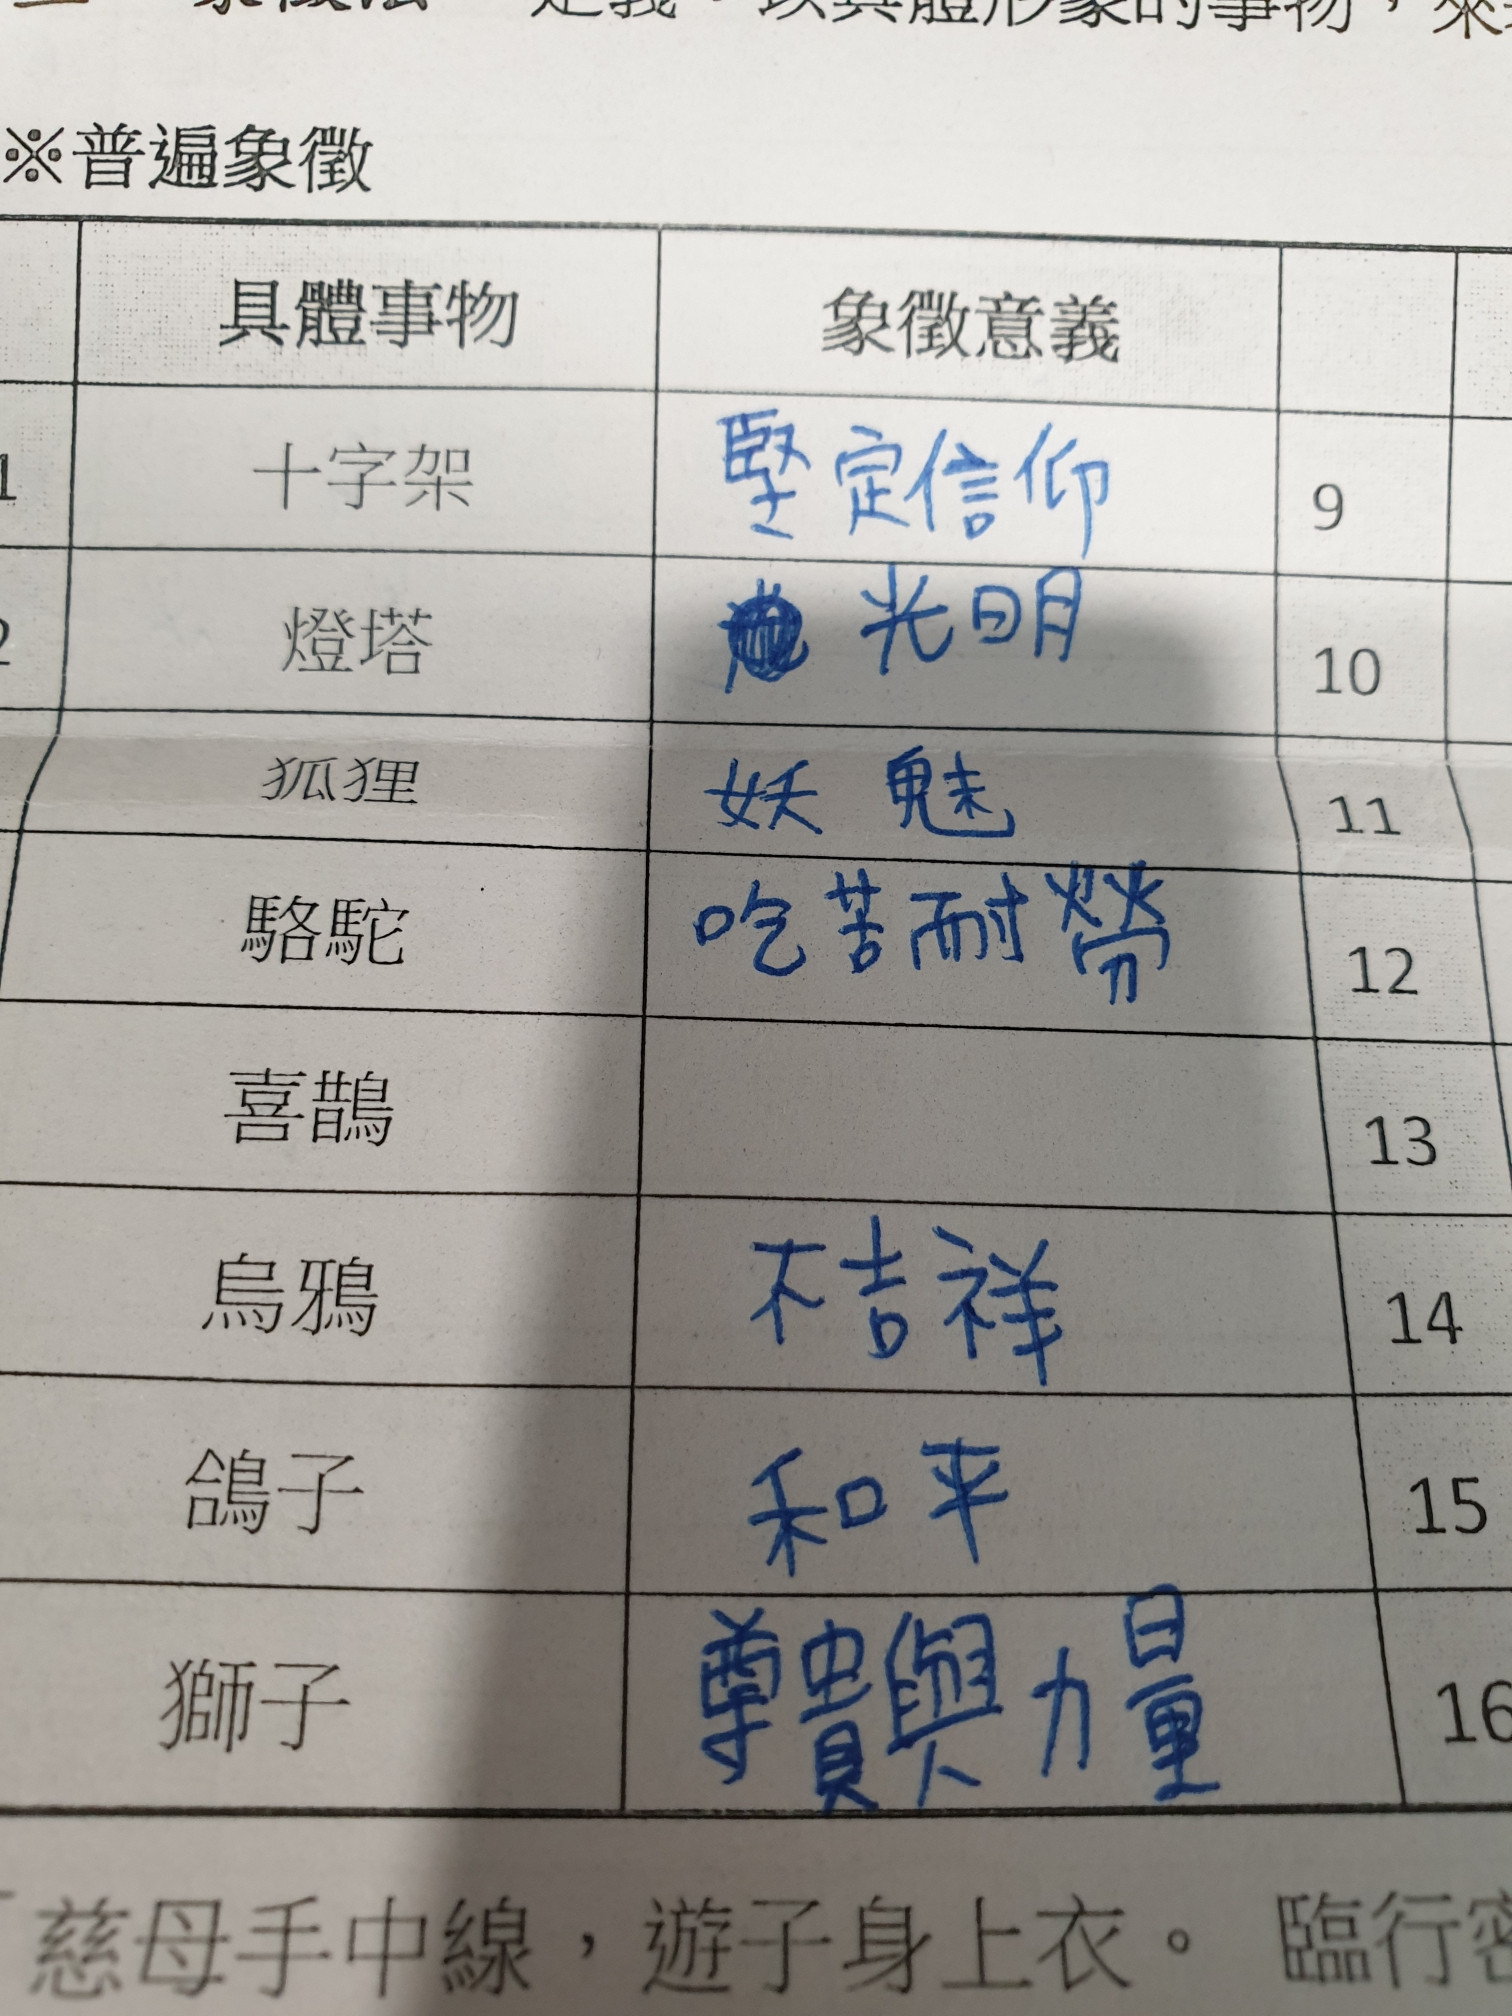 象徵法 定義：以具體形象的事物，來
※普遍象徵
具體事物 象徵意義
1 十字架 堅定信仰 9
2 燈塔 光明 10
狐狸 妖魅 11
駱駝 吃苦耐勞 12
喜鵲 13
烏鴉 不吉祥 14
鴿子 和平 15
獅子 尊貴與力量 16
「慈母手中線，遊子身上衣。臨行密